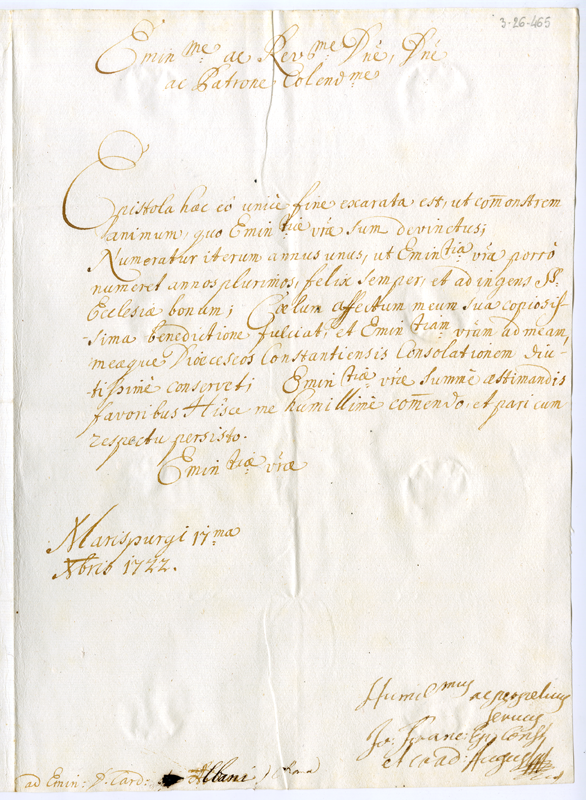 3-26-465
Emin me ac Rev me Dñe, Dñe
ac Patrone Colend me
Epistola hac eô unicè fine exarata est, ut com̃onstrem
animum, quo Emin tiæ vr̃æ sum devinctus;
Numeratur iterum annus unus, ut Emin tia vr̃a porrò
numeret annos plurimos, felix semper, et ad ingens SS.
Ecclesiæ bonum; Cælum affectum meum sua copiosis
sima benedictione fulciat, et Emin tiam vr̃am ad meam,
meæque Diœceseos Constantiensis Consolationem diu-
-tissimè conservet; Emin tiæ vr̃æ summè æstimandis
favoribus Hisce me humillimè com̃endo, et pari cum
respectu persisto.
Emin tiæ vr̃æ
Marispurgi 17 ma
Xbris 1722.
Humil mus ac
servus
Jo: Franc: Ep: Const:
et Coad: August:
ad Emin: D: Card: Albani